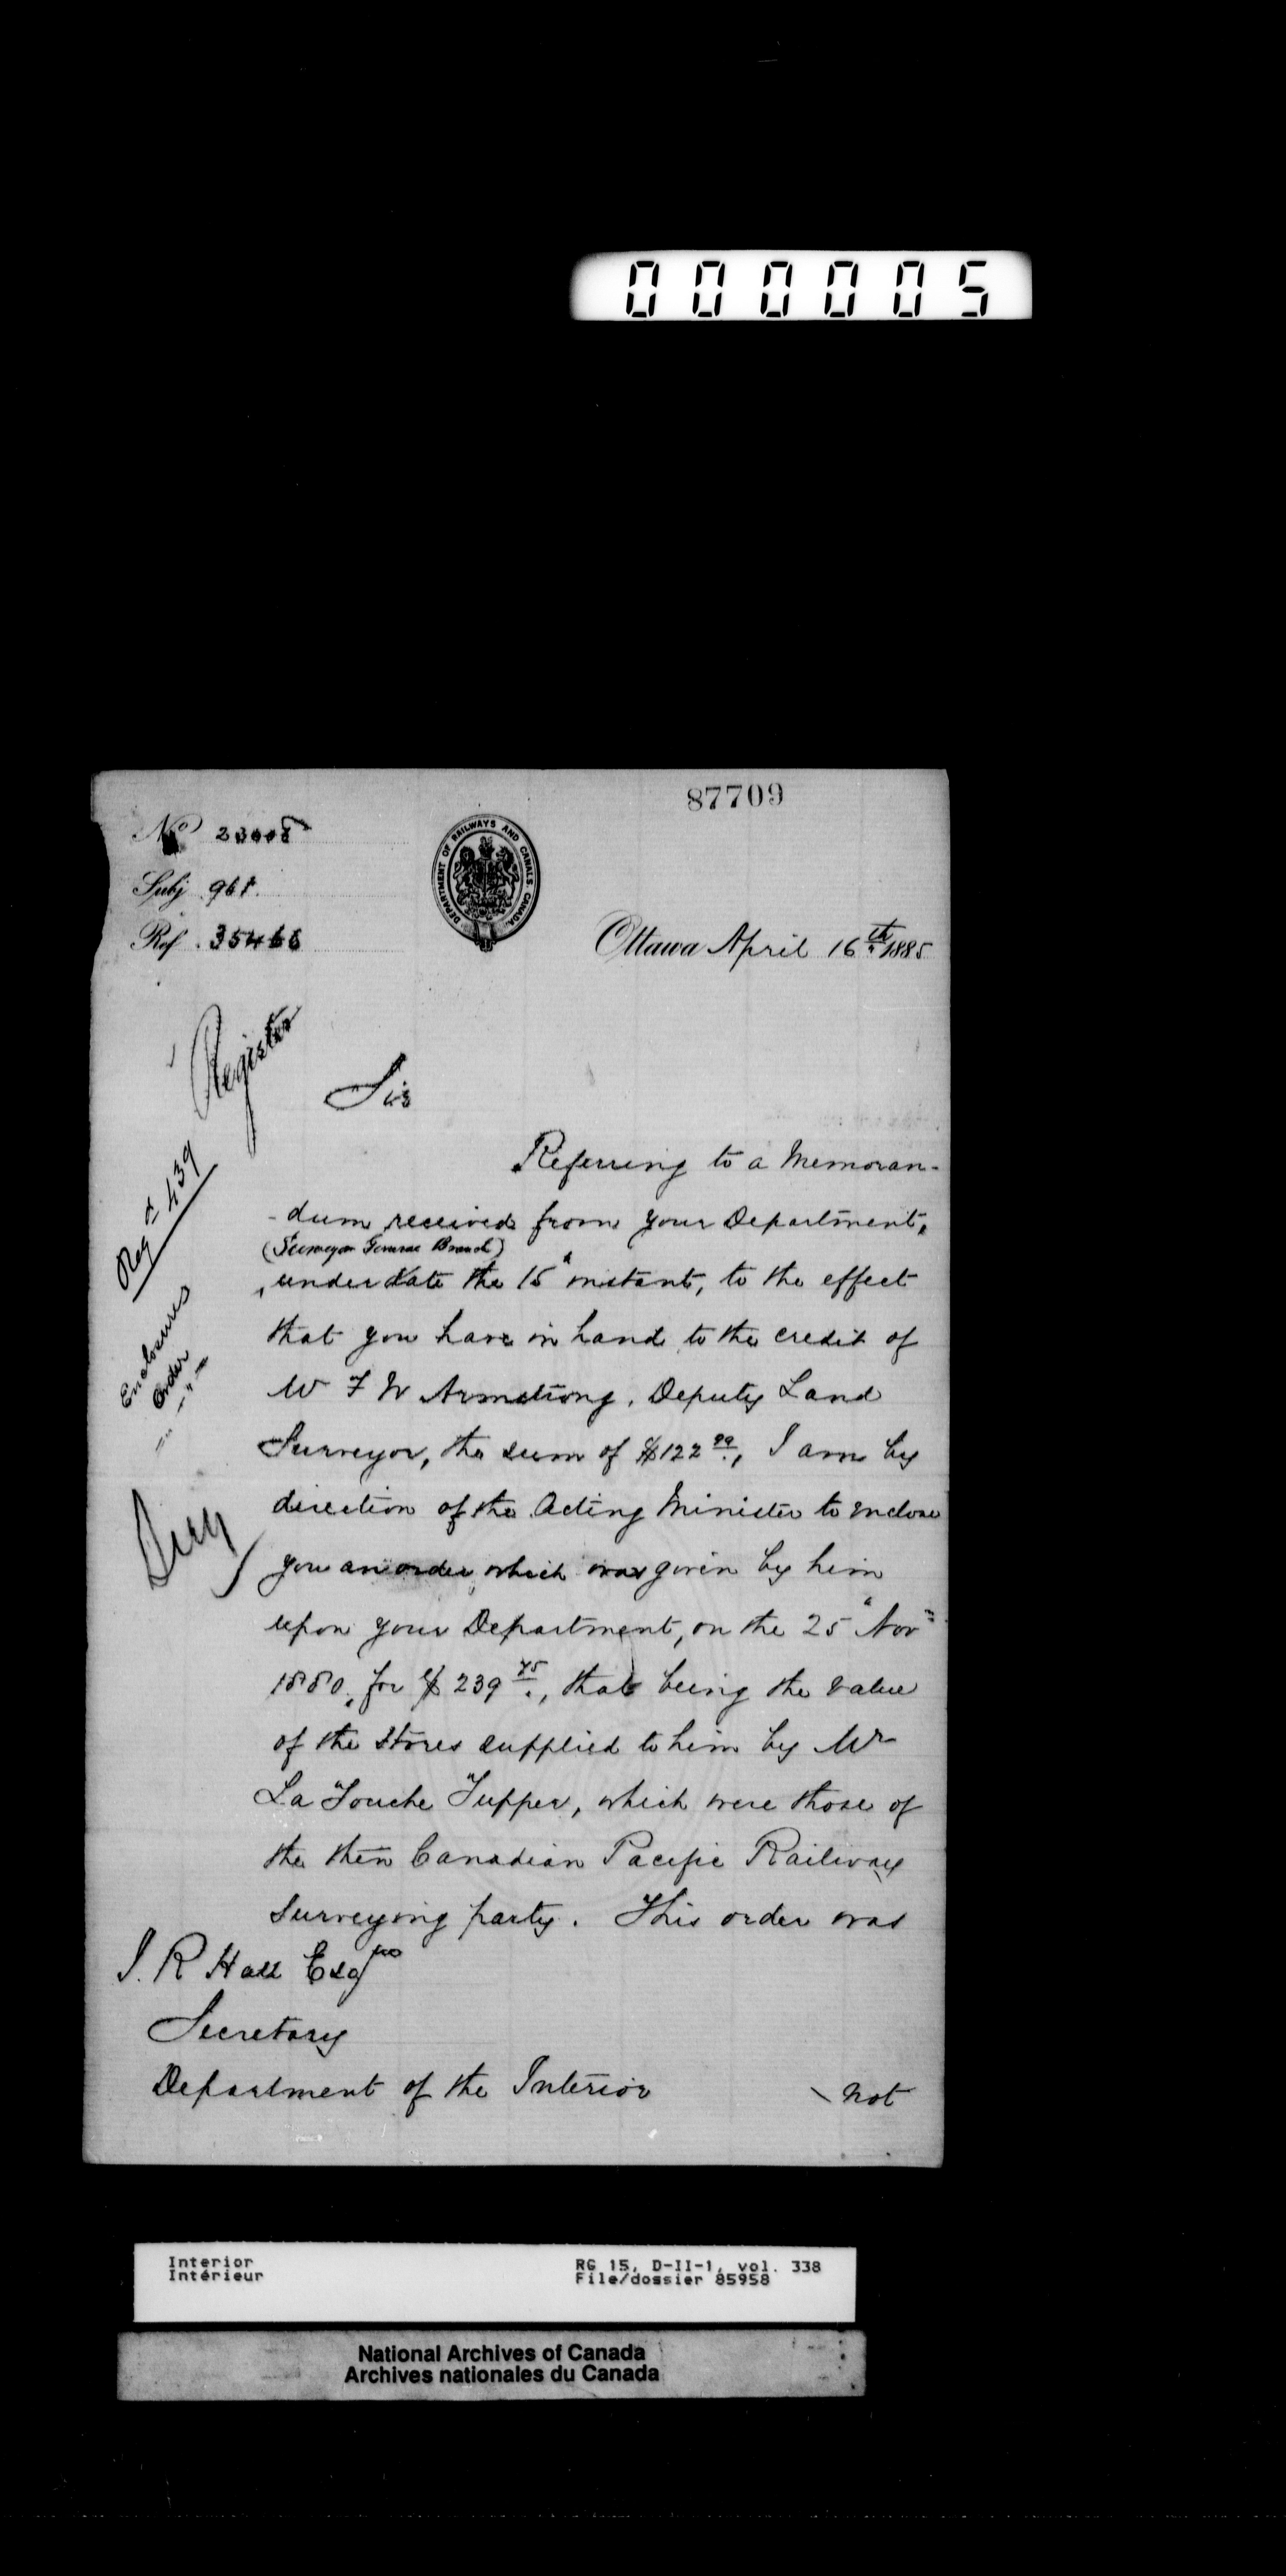 000005
87709
No 23008
Subj 968.
Ref. 35466
DEPARTMENT OF RAILWAYS AND CANALS. CANADA.
Ottawa April 16th 1885
Register
Sir
Referring to a Memoran-
-dum received from your Department,
(Surveyor General Branch)
under date the 15" instant, to the effect
that you have in hand to the credit of
Mr F W Armstrong, Deputy Land
Surveyor, the sum of $122 99, I am by
direction of the Acting Minister to enclose
you an order which was given by him
upon your Department, on the 25" Nov
1880, for $239 75, that being the value
of the stores supplied to him by Mr
La Touche Tupper, which were those of
the then Canadian Pacific Railway
Surveying party. This order was
Reg 439
Enclosures
Order
J. R Hall Esqre
Secretary
Department of the Interior
\ not
Interior
Intérieur
RG 15, D-II-1, vol. 338
File/dossier 85958
National Archives of Canada
Archives nationales du Canada